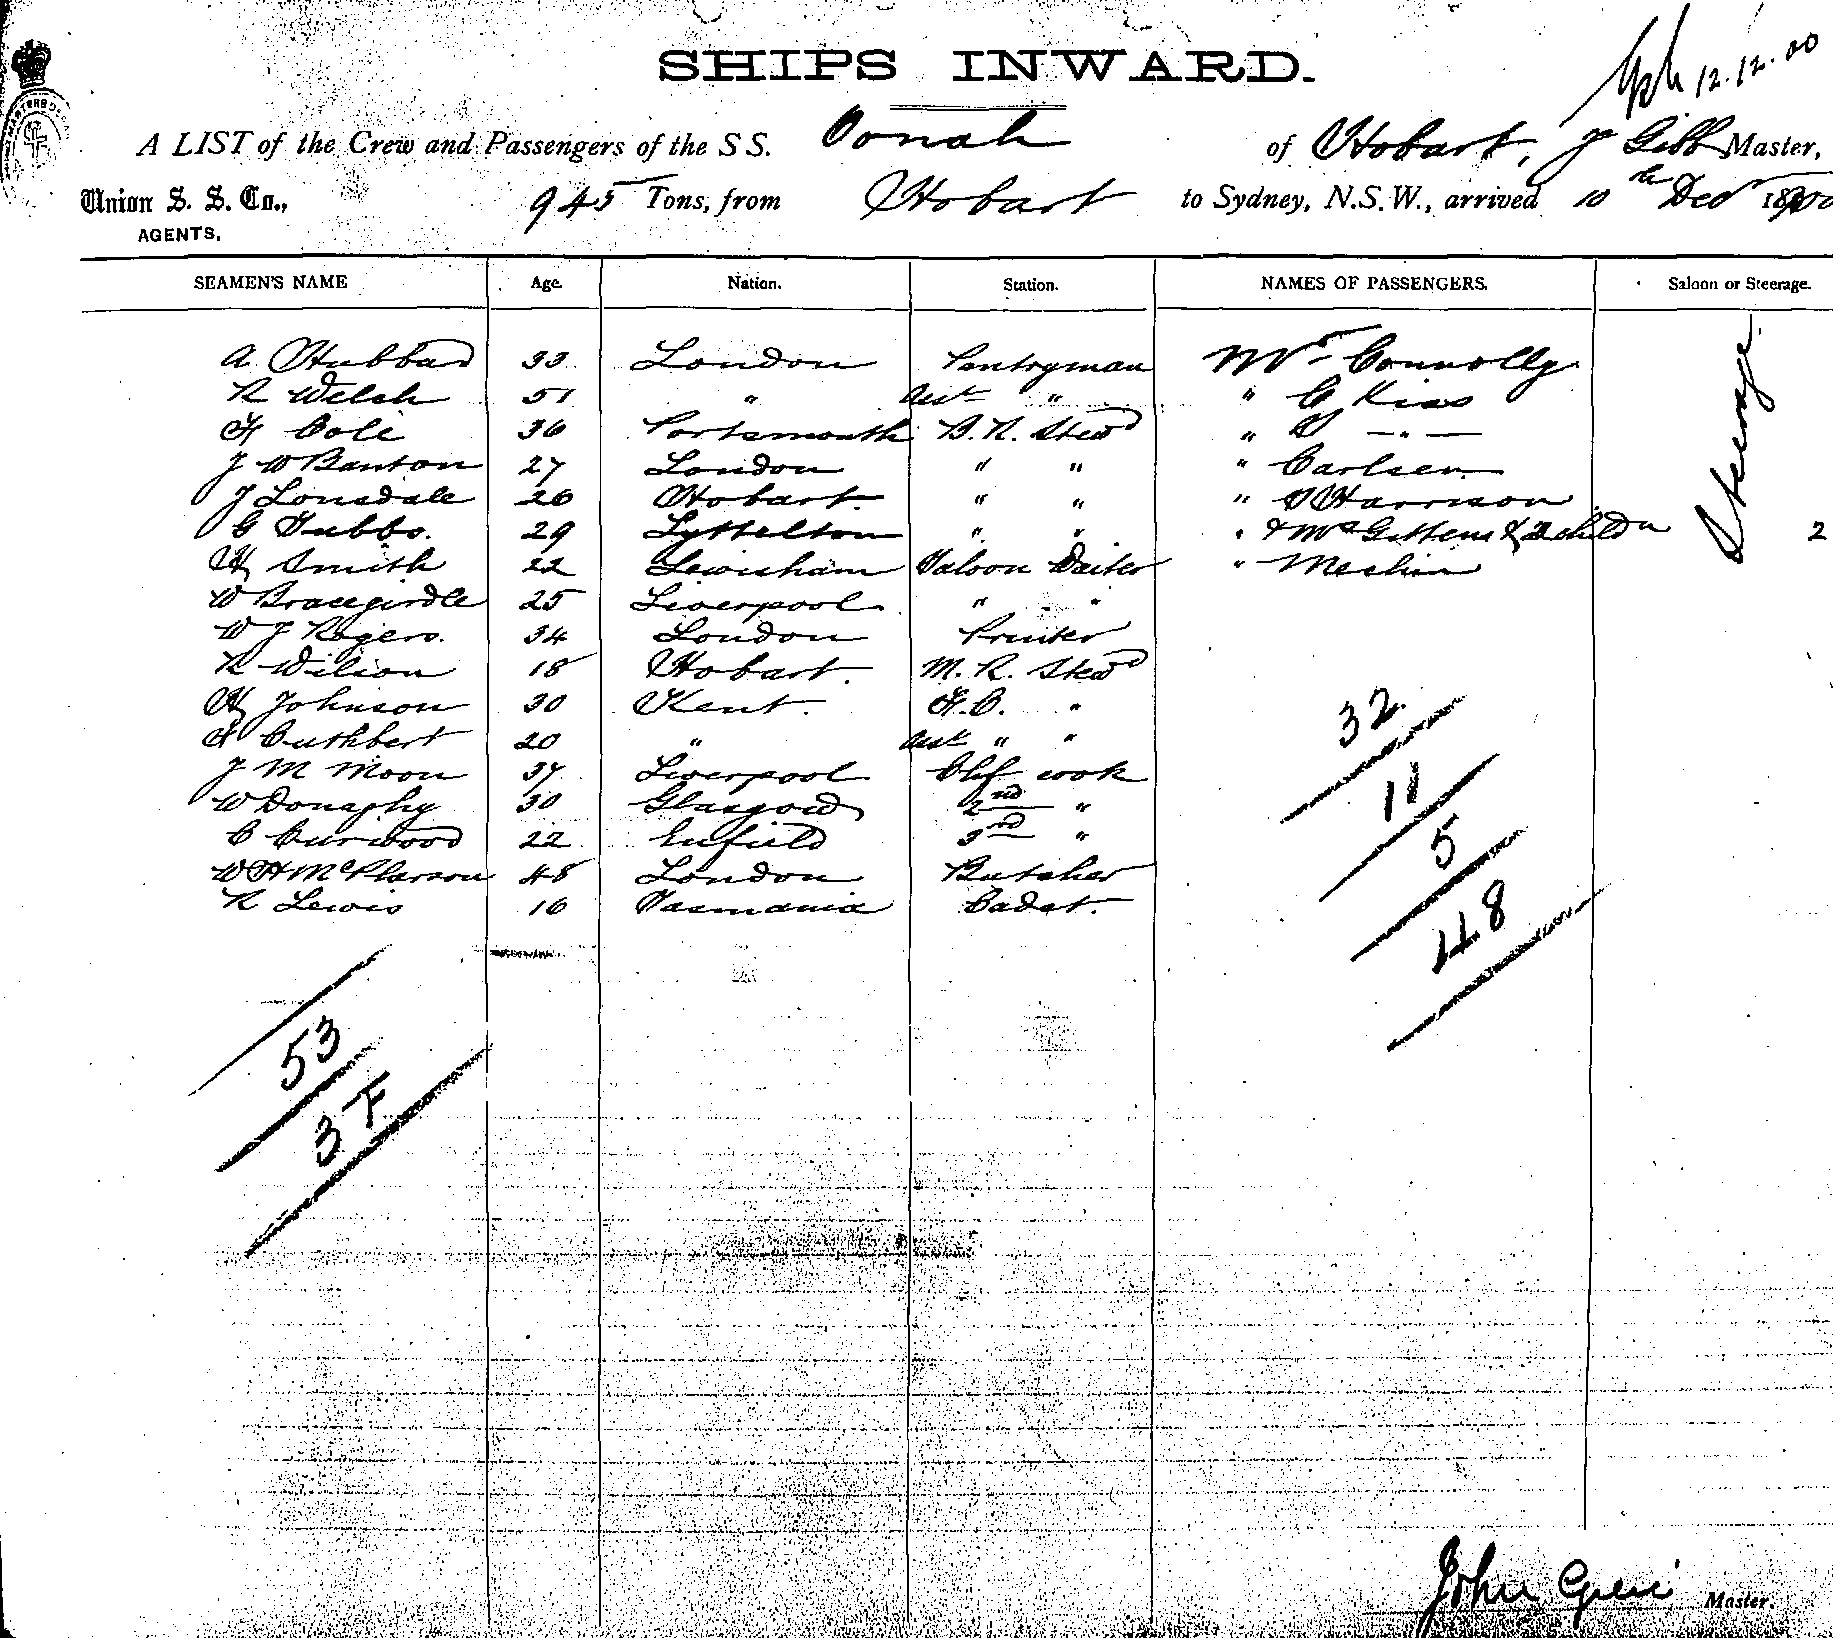 SHIPS INWARD.
12.12.00
A LIST of the Crew and Passengers of the S S. Oonah of Hobart, J Gibb Master,
Union S. S. Co., 945 Tons, from Hobart to Sydney, N.S.W., arrived 10th Dec 1900
AGENTS,
SEAMEN'S NAME Age. Nation. Station. NAMES OF PASSENGERS. Saloon or Steerage.
A Hubbard 33 London Pantryman Mr Connolly Steerage.
R Welsh 51 " Asst " " G Kiss
F Cole 36 Portsmouth B. R. Stewd " S — " —
J W Banton 27 London " " " Carlsen
J Lonsdale 26 Hobart. " " " Harrison
G Tubbs. 29 Lyttelton " " " & Mrs Gittens & 2 childn 2
H Smith 22 Lewisham Saloon Waiter "
W Bracegirdle 25 Liverpool " "
W J Rogers. 34 London Printer
R Wilson 18 Hobart. M. R. Stewd
H Johnson 30 Kent. F. C. "
F Cuthbert 20 " Asst " "
J M Moon 37 Liverpool Chf cook
W Donaghy 30 Glasgow 2nd "
C Curwood 22 Enfield 3rd "
W H McPharson 48 London Butcher
R Lewis 16 Tasmania Cadet.
32
11
5
48
53
3 F
John Master.